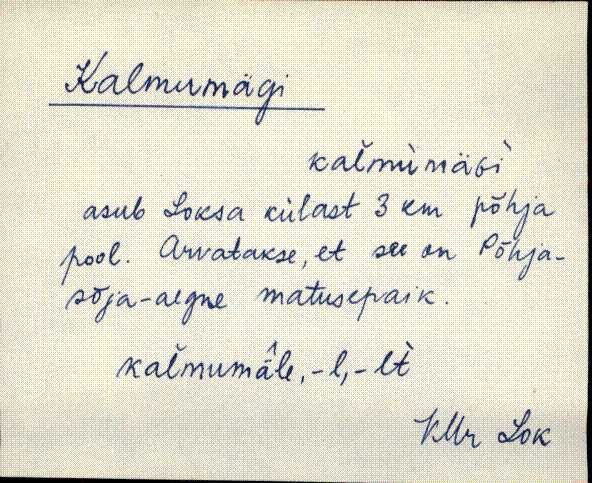 Kalmumägi
kal̆mùmäɢì
asub Loksa külast 3 km põhja
pool. Arvatakse, et see on Põhja-
sõja-aegne matusepaik.
kal̆mumä̂le, -l, -lt̀
VMr Lok